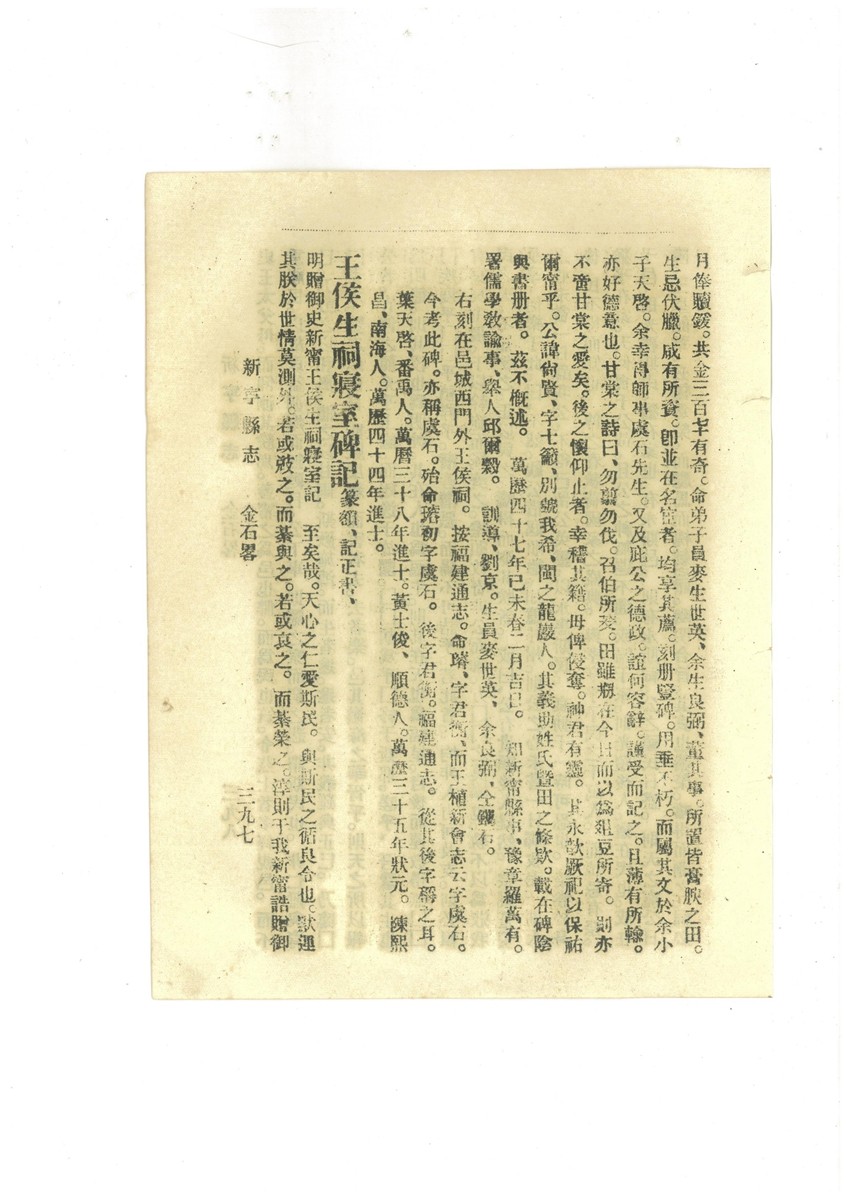 月俸贖鍰。共金三百𠦜有奇。命弟子員麥生世英、余生良弼、董其事。所置皆膏腴之田。
生忌伏臘。咸有所資。卽並在名宦者。均享其薦。刻册豎碑。用垂不朽。而屬其文於余小
子天啓。余幸得師事虞石先生。又及庇公之德政。誼何容辭。謹受而記之。且薄有所輸。
亦好德意也。甘棠之詩曰、勿翦勿伐。召伯所茇。田雖粥在今日而以爲俎豆所寄。則亦
不啻甘棠之愛矣。後之懷仰止者。幸稽其籍。毋俾侵奪。神君有靈。其永歆厥祀以保祐
爾甯乎。公諱尙賢、字七籲、別號我希、閩之龍巖人。其義助姓氏暨田之條欵。載在碑陰
與書册者。茲不概述。 萬歷四十七年已未春二月吉旦。 知新甯縣事、豫章羅萬有。
署儒學敎諭事、舉人邱爾㲄。 訓導、劉京。生員麥世英、余良弼、仝鐫石。
右刻在邑城西門外王侯祠。按福建通志。命璿、字君衡、而王植新會志云字虞石。
今考此碑。亦稱虞石。殆命璿初字虞石。後字君衡。福建通志。從其後字稱之耳。
葉天啓、番禹人。萬曆三十八年進士。黃士俊、順德人。萬歷三十五年狀元。陳熙
昌、南海人。萬歷四十四年進士。
王侯生祠寢室碑記 篆額、記正書、
明贈御史新甯王侯生祠寢室記 至矣哉。天心之仁愛斯民。與斯民之循良令也。默運
其朕於世情莫測外。若或敚之。而綦與之。若或哀之。而綦榮之。淳則于我新甯誥贈御
新寧縣志 金石畧 三九七